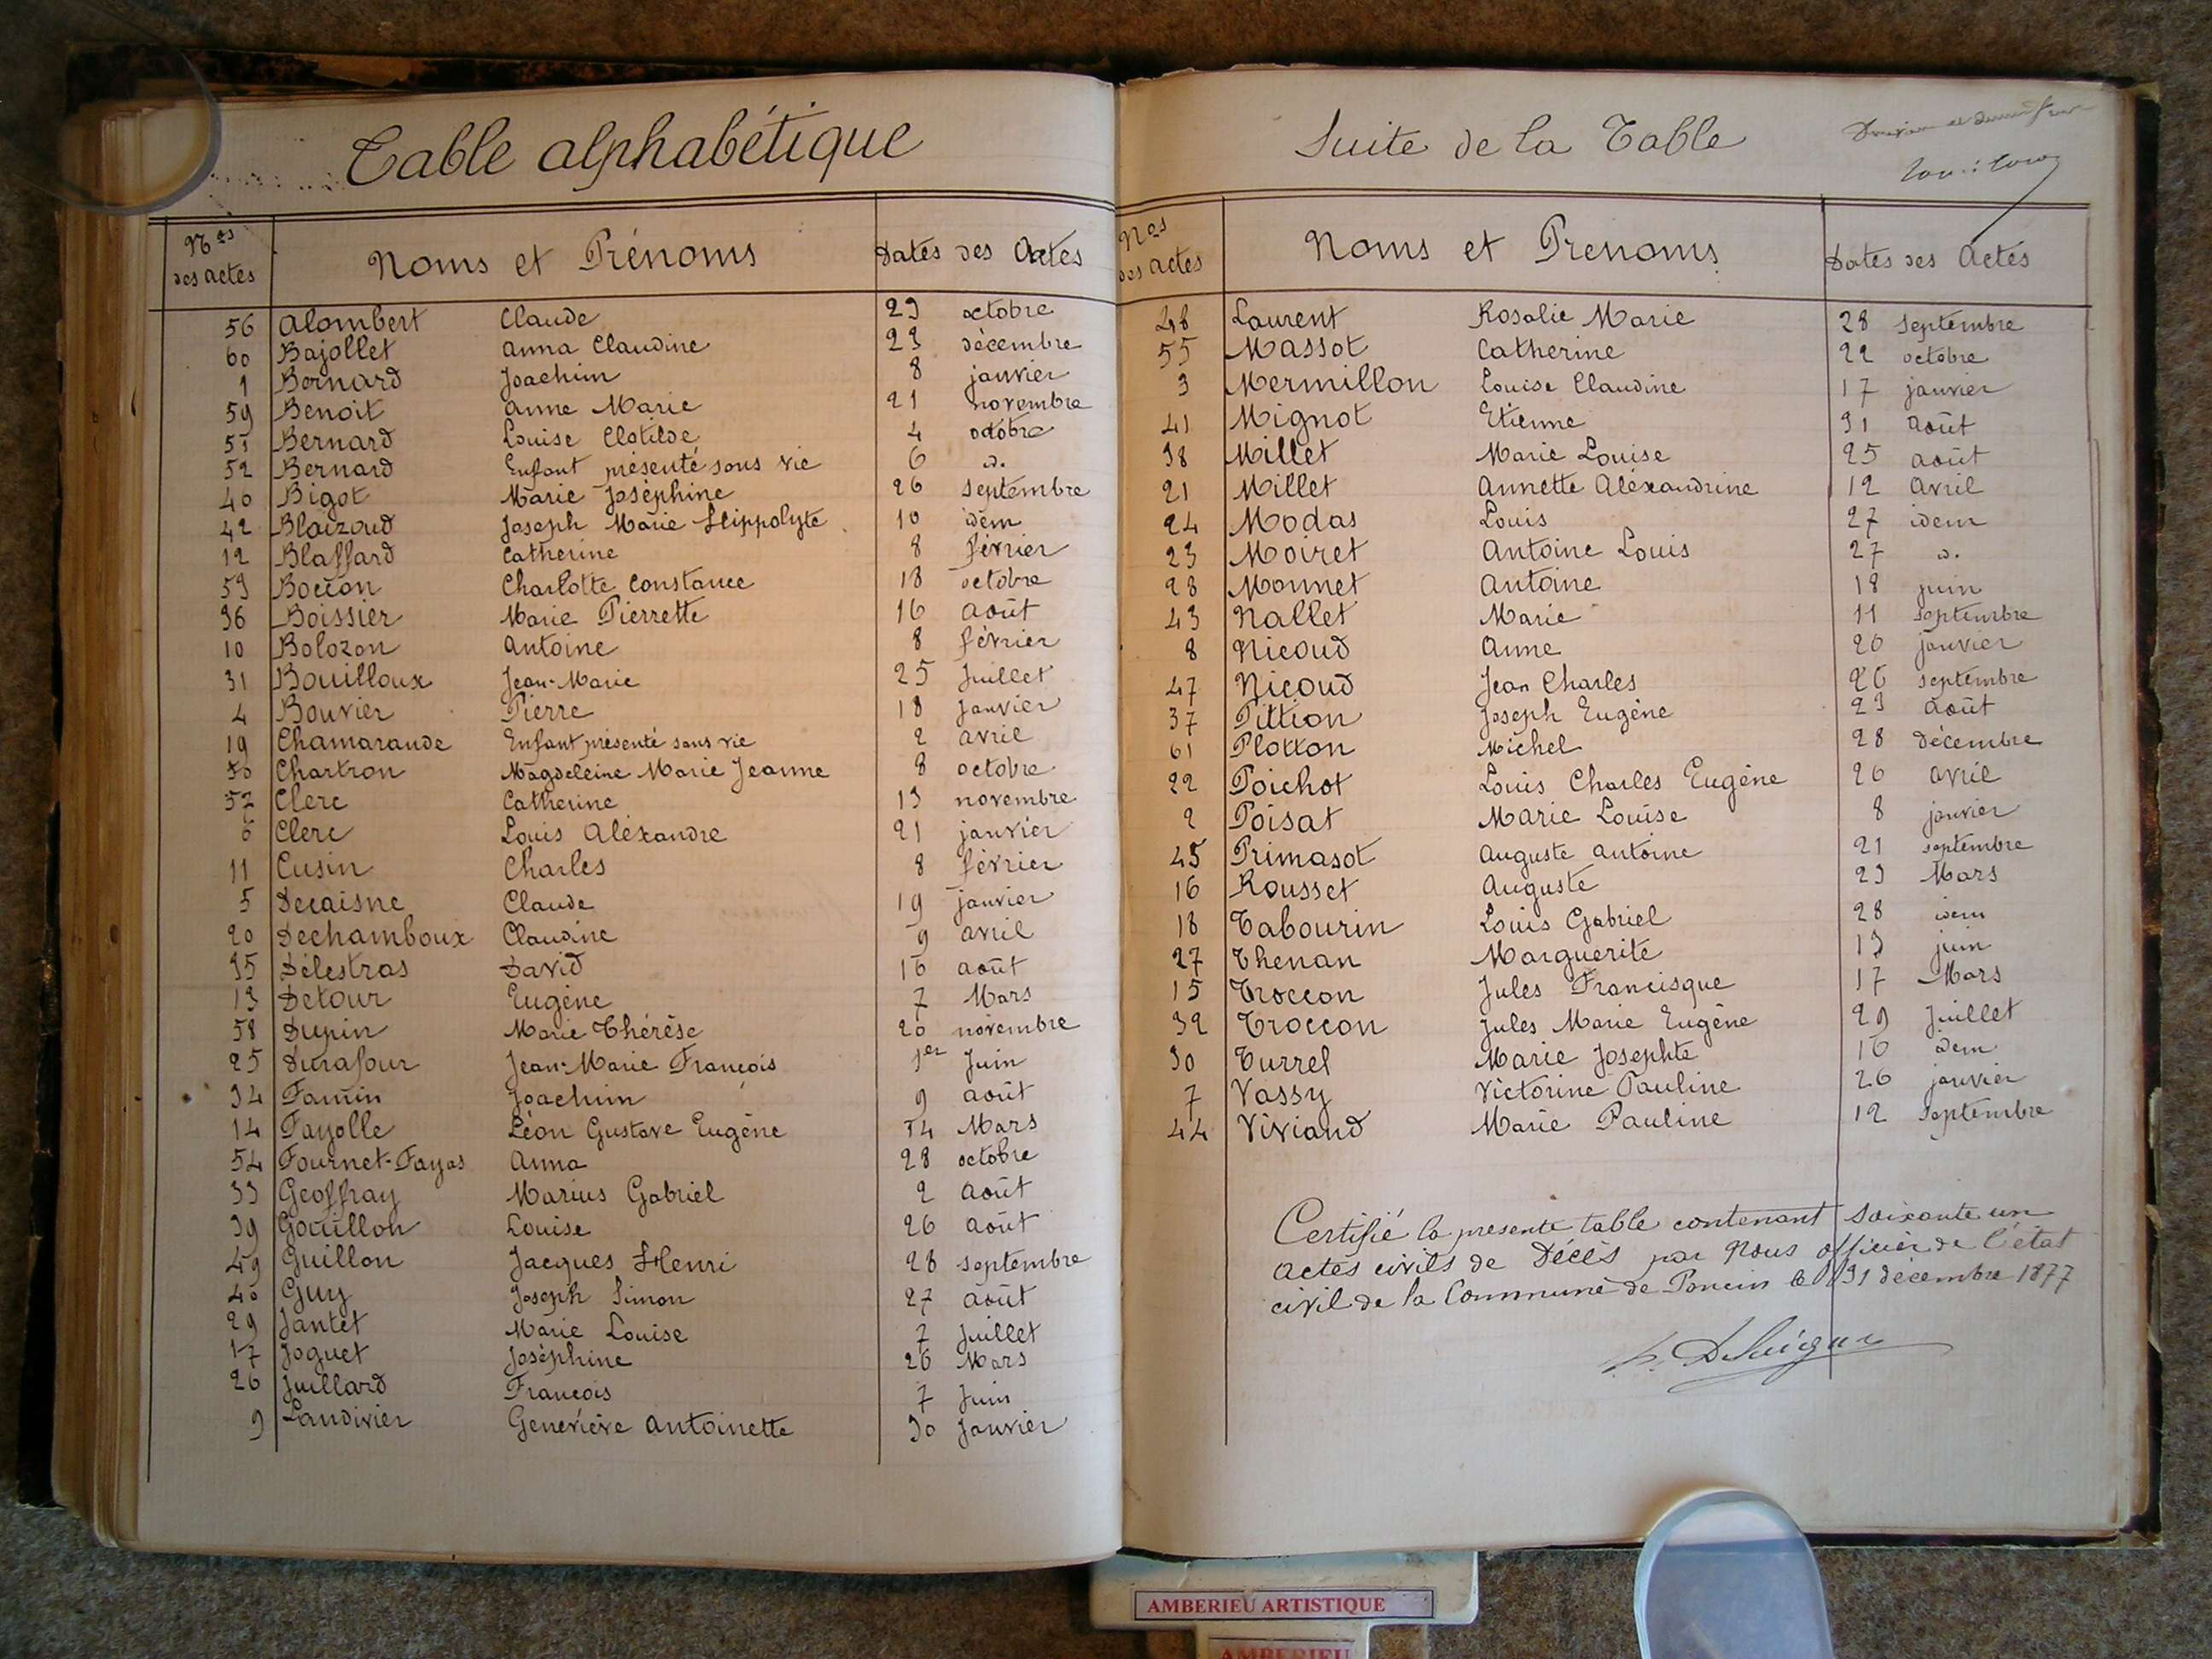 Table alphabétique
Nos des actes Noms et Prénoms Dates des Actes
56 Alombert Claude 29 octobre
60 Bajollet Anna Claudine 23 décembre
1 Bernard Joachim 8 janvier
59 Benoit Anne Marie 21 novembre
51 Bernard Louise Clotilde 4 octobre
52 Bernard Enfant présenté sans vie 6 d.
40 Bigot Marie Joséphine 26 septembre
42 Blaizoud Joseph Marie Hippolyte 10 idem
12 Blaffard Catherine 8 février
53 Boccon Charlotte Constance 18 octobre
36 Boissier Marie Pierrette 16 août
10 Bolozon Antoine 8 février
31 Bouilloux Jean-Marie 25 Juillet
4 Bouvier Pierre 18 janvier
19 Chamarande Enfant présenté sans vie 2 avril
50 Chartron Magdeleine Marie Jeanne 8 octobre
57 Clerc Catherine 13 novembre
6 Clerc Louis Aléxandre 21 janvier
11 Cusin Charles 8 février
5 Decaisne Claude 19 janvier
20 Dechamboux Claudine 9 avril
35 Délestras David 16 août
13 Detour Eugène 7 Mars
58 Dupin Marie Thérèse 20 novembre
25 Durafour Jean-Marie François 1er Juin
34 Famin Joachim 9 août
14 Fayolle Léon Gustave Eugène 14 Mars
54 Fournet-Fayas Anna 28 octobre
33 Geoffray Marius Gabriel 2 août
39 Gouillon Louise 26 août
49 Guillon Jacques Henri 28 septembre
40 Guy Joseph Simon 27 août
29 Jantet Marie Louise 7 Juillet
17 Joguet Joséphine 26 Mars
26 Juillard François 7 Juin
9 Landivier Geneviève Antoinette 30 Janvier
Suite de la Table
Nos des actes Noms et Prenoms Dates des Actes
48 Laurent Rosalie Marie 28 septembre
55 Massot Catherine 22 octobre
3 Mermillon Louise Claudine 17 janvier
41 Mignot Etienne 31 août
38 Millet Marie Louise 25 août
21 Millet Annette Aléxandrine 12 avril
24 Modas Louis 27 idem
23 Moiret Antoine Louis 27 d.
28 Monnet Antoine 18 juin
43 Nallet Marie 11 septembre
8 Nicoud Anne 20 janvier
47 Nicoud Jean Charles 26 septembre
37 Pittion Joseph Eugène 23 août
61 Plotton Michel 28 décembre
22 Poichot Louis Charles Eugène 26 avril
2 Poisat Marie Louise 8 janvier
45 Primasot Auguste Antoine 21 septembre
16 Rousset Auguste 23 Mars
18 Tabourin Louis Gabriel 28 idem
27 Thenan Marguerite 13 juin
15 Troccon Jules Francisque 17 Mars
32 Troccon Jules Marie Eugène 29 Juillet
30 Turrel Marie Josephte 16 idem
7 Vassy Victorine Pauline 26 janvier
44 Viviand Marie Pauline 12 septembre
Certifié la présente table contenant soixante un
actes civils de Décès par Nous officier de l'état
civil de la Commune de Poncin le 31 décembre 1877
AMBERIEU ARTISTIQUE
AMBERIEU